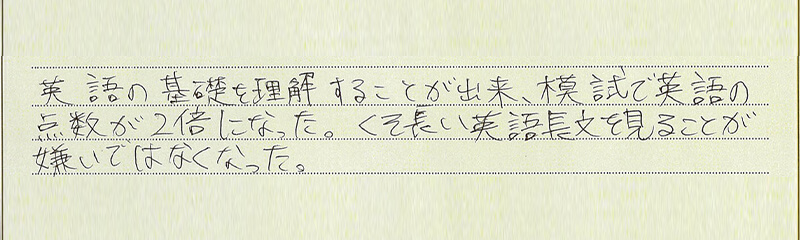 英語の基礎を理解することが出来、模試で英語の
点数が2倍になった。くそ長い英語長文を見ることが
嫌いではなくなった。